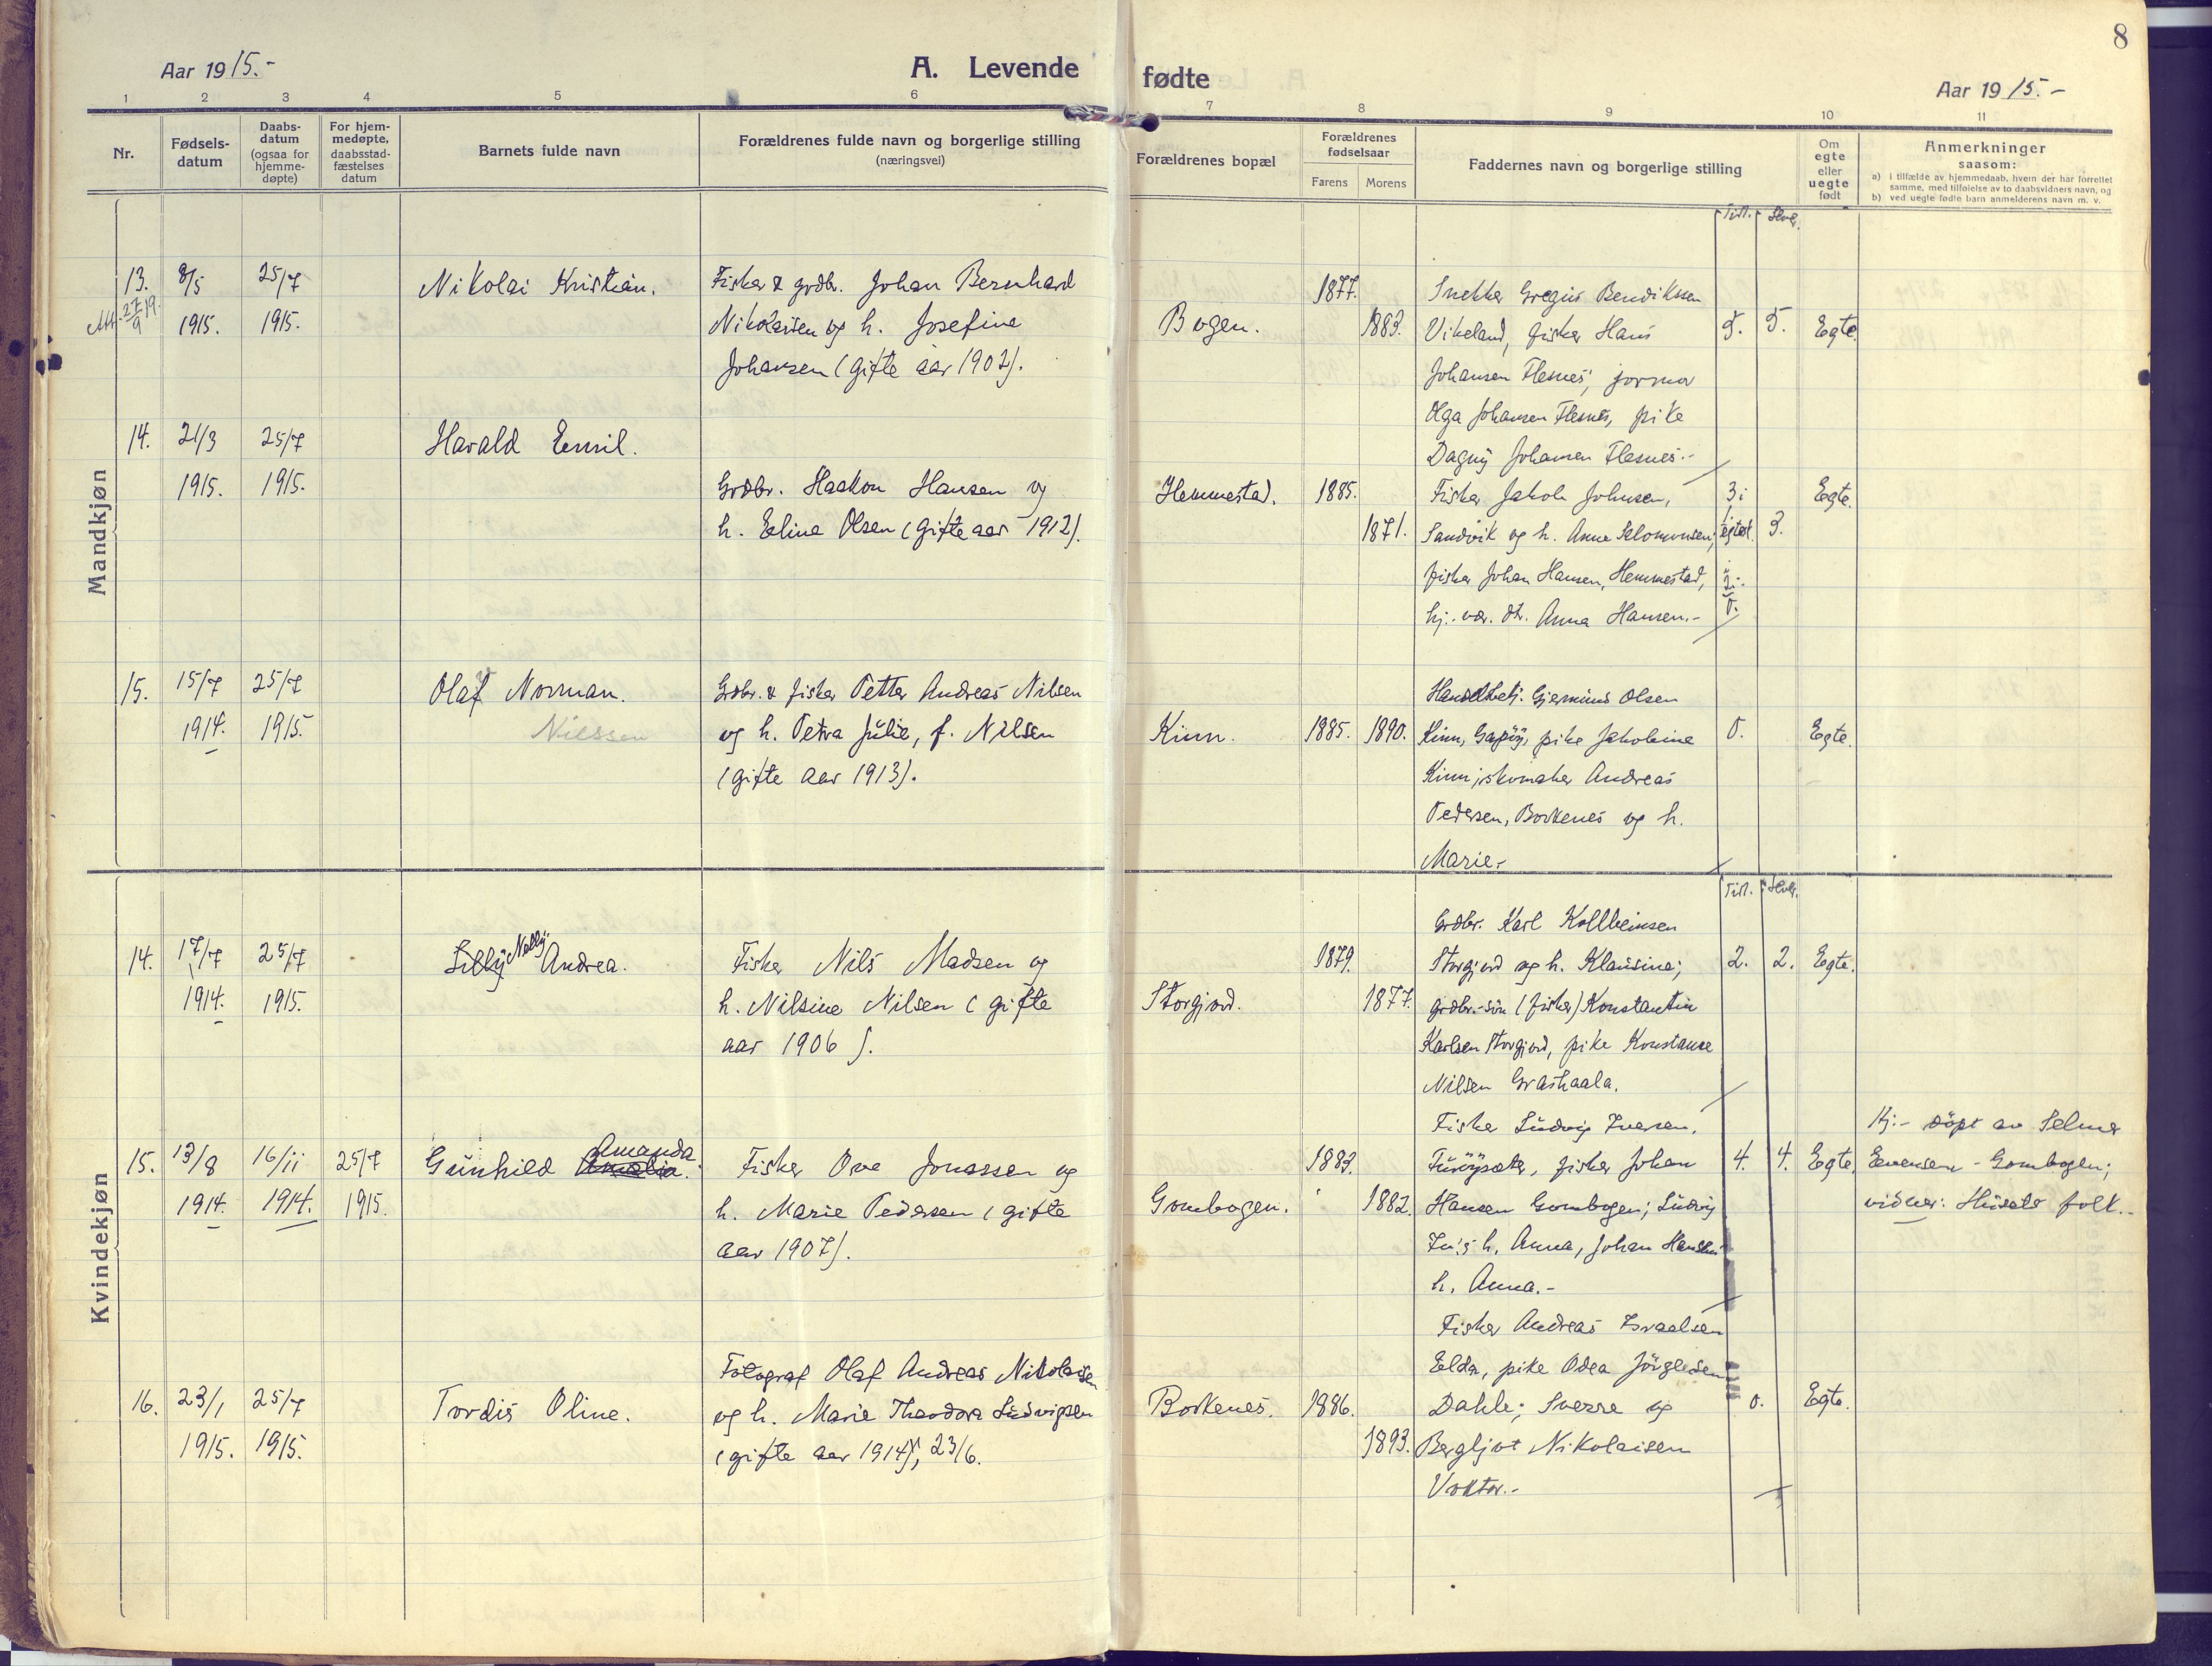 8
Aar 1915.-
A. Levende fødte
Aar 1915.-
1 2 3 4 5 6 7 8 9 10 11
Nr.
Fødsels-
datum
Daabs-
datum
(ogsaa for
hjemme-
døpte)
For hjem-
medøpte,
daabsstad-
fæstelses
datum
Barnets fulde navn
Forældrenes fulde navn og borgerlige stilling
(næringsvei)
Forældrenes bopæl
Forældrenes
fødselsaar
Farens Morens
Faddernes navn og borgerlige stilling
Om
egte
eller
uegte
født
Anmerkninger
saasom:
a) i tilfælde av hjemmedaab, hvem der har forrettet
samme, med tilføielse av to daabsvidners navn, og
b) ved uegte fødte barn anmelderens navn m. v.
Mandkjøn
13. 8/5 25/7
Att. 27/9 19.
1915. 1915.
Nikolai Kristian.
Fisker & grdbr. Johan Bernhard
Nikolaisen og h. Josefine
Johansen (gifte aar 1902).
Bogen.
1877.
1883.
Snekker Gregus Bendikssen
Vikeland, fisker Hans
Johansen Flesnes, jormor
Olga Johansen Flesnes, pike
Dagny Johansen Flesnes.-
5. 5. Egte.
14. 21/3 25/7
1915. 1915.
Harald Emil.
Grdbr. Haakon Hansen og
h. Eline Olsen (gifte aar 1912).
Hemmestad.
1885.
1871.
Fisker Jakob Johnsen,
Sandvik og h. Anna Salomonsen;
fisker Johan Hansen, Hemmestad,
hj.-vær. dtr. Anna Hansen.-
3 i
egtest.
3.
Egte.
15. 15/7 25/7
1914. 1915.
Olaf Norman.
Nilssen
Grdbr. & fisker Petter Andreas Nilsen
og h. Petra Julie, f. Nilsen
(gifte aar 1913).
Kinn.
1885. 1890.
Handelsbetj. Gjermund Olsen
Kinn, Gapøy, pike Jakobine
Kinn; skomaker Andreas
Pedersen, Borkenes og h.
Marie.-
0. Egte.
Kvindekjøn
14. 17/7 25/7
1914. 1915.
Lilly Nelly Andrea.
Fisker Nils Madsen og
h. Nilsine Nilsen (gifte
aar 1906).
Storgjord.
1879.
1877.
Grdbr. Karl Kollbeinsen
Storgjord og h. Klausine;
grdbr.-søn (fisker) Konstantin
Karlsen Storgjord, pike Konstanse
Nilsen Grashaala.
2. 2. Egte.
15. 13/8 16/11 25/7
1914. 1914. 1915.
Gunhild Amalia. Amanda
Fisker Ove Jonassen og
h. Marie Pedersen (gifte
aar 1907).
Gombogen.
1883.
1882.
Fisker Ludvig Iversen,
Furøysæter, fisker Johan
Hansen Gombogen; Ludvig
Iv's h. Anna, Johan Hansens
h. Anna.-
4. 4. Egte.
Hj.- døpt av Selmer
Evensen - Gombogen;
vidner: Husets folk.-
16. 23/1 25/7
1915. 1915.
Tordis Oline.
Fotograf Olaf Andreas Nikolaisen
og h. Marie Theodora Ludvigsen
(gifte aar 1914), 23/6.
Borkenes.
1886.
1893.
Fisker Andreas Israelsen
Elda, pike Odea Jørgensen
Dahle; Sverre og
Bergljot Nikolaisen
Voktor.-
0. Egte.